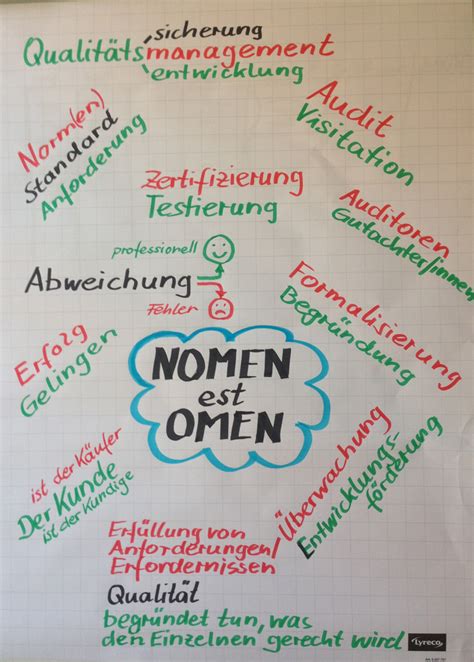 sicherung
Qualitätsmanagement
entwicklung
Norm(en)
Standard
Anforderung
Audit
Visitation
Zertifizierung
Testierung
Auditoren
Gutachter/innen
professionell
Abweichung
Fehler
Formalisierung
Begründung
Erfolg
Gelingen
NOMEN
est
OMEN
ist der Käufer
Der Kunde
ist der Kundige
Überwachung
Entwicklungs-
förderung
Erfüllung von
Anforderungen/
Erfordernissen
Qualität
begründet tun, was
den Einzelnen gerecht wird
Lyreco